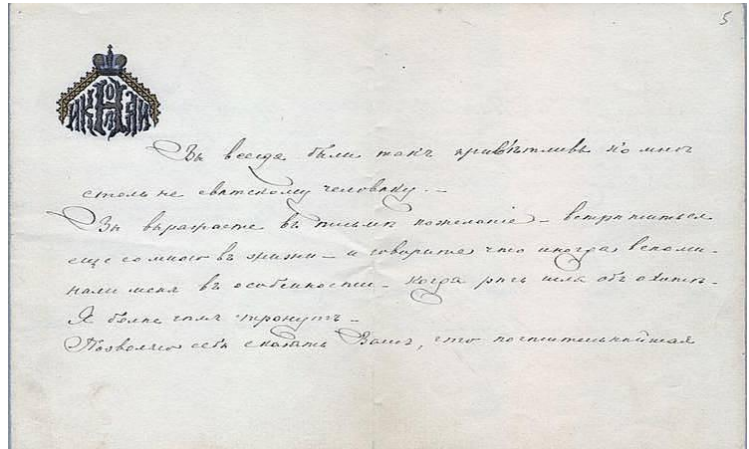 5
НИКОЛАЙ
Вы всегда были такъ привѣтливы ко мнѣ
столь не свѣтскому человѣку. —
Вы выражаете въ письмѣ пожеланіе — встрѣтиться
еще со мною въ жизни — и говорите что иногда вспоми-
нали меня въ особенности — когда рѣчь шла объ охотѣ. —
Я былъ тронутъ —
Позволяю себѣ сказать Вамъ, что почтительнѣйшая